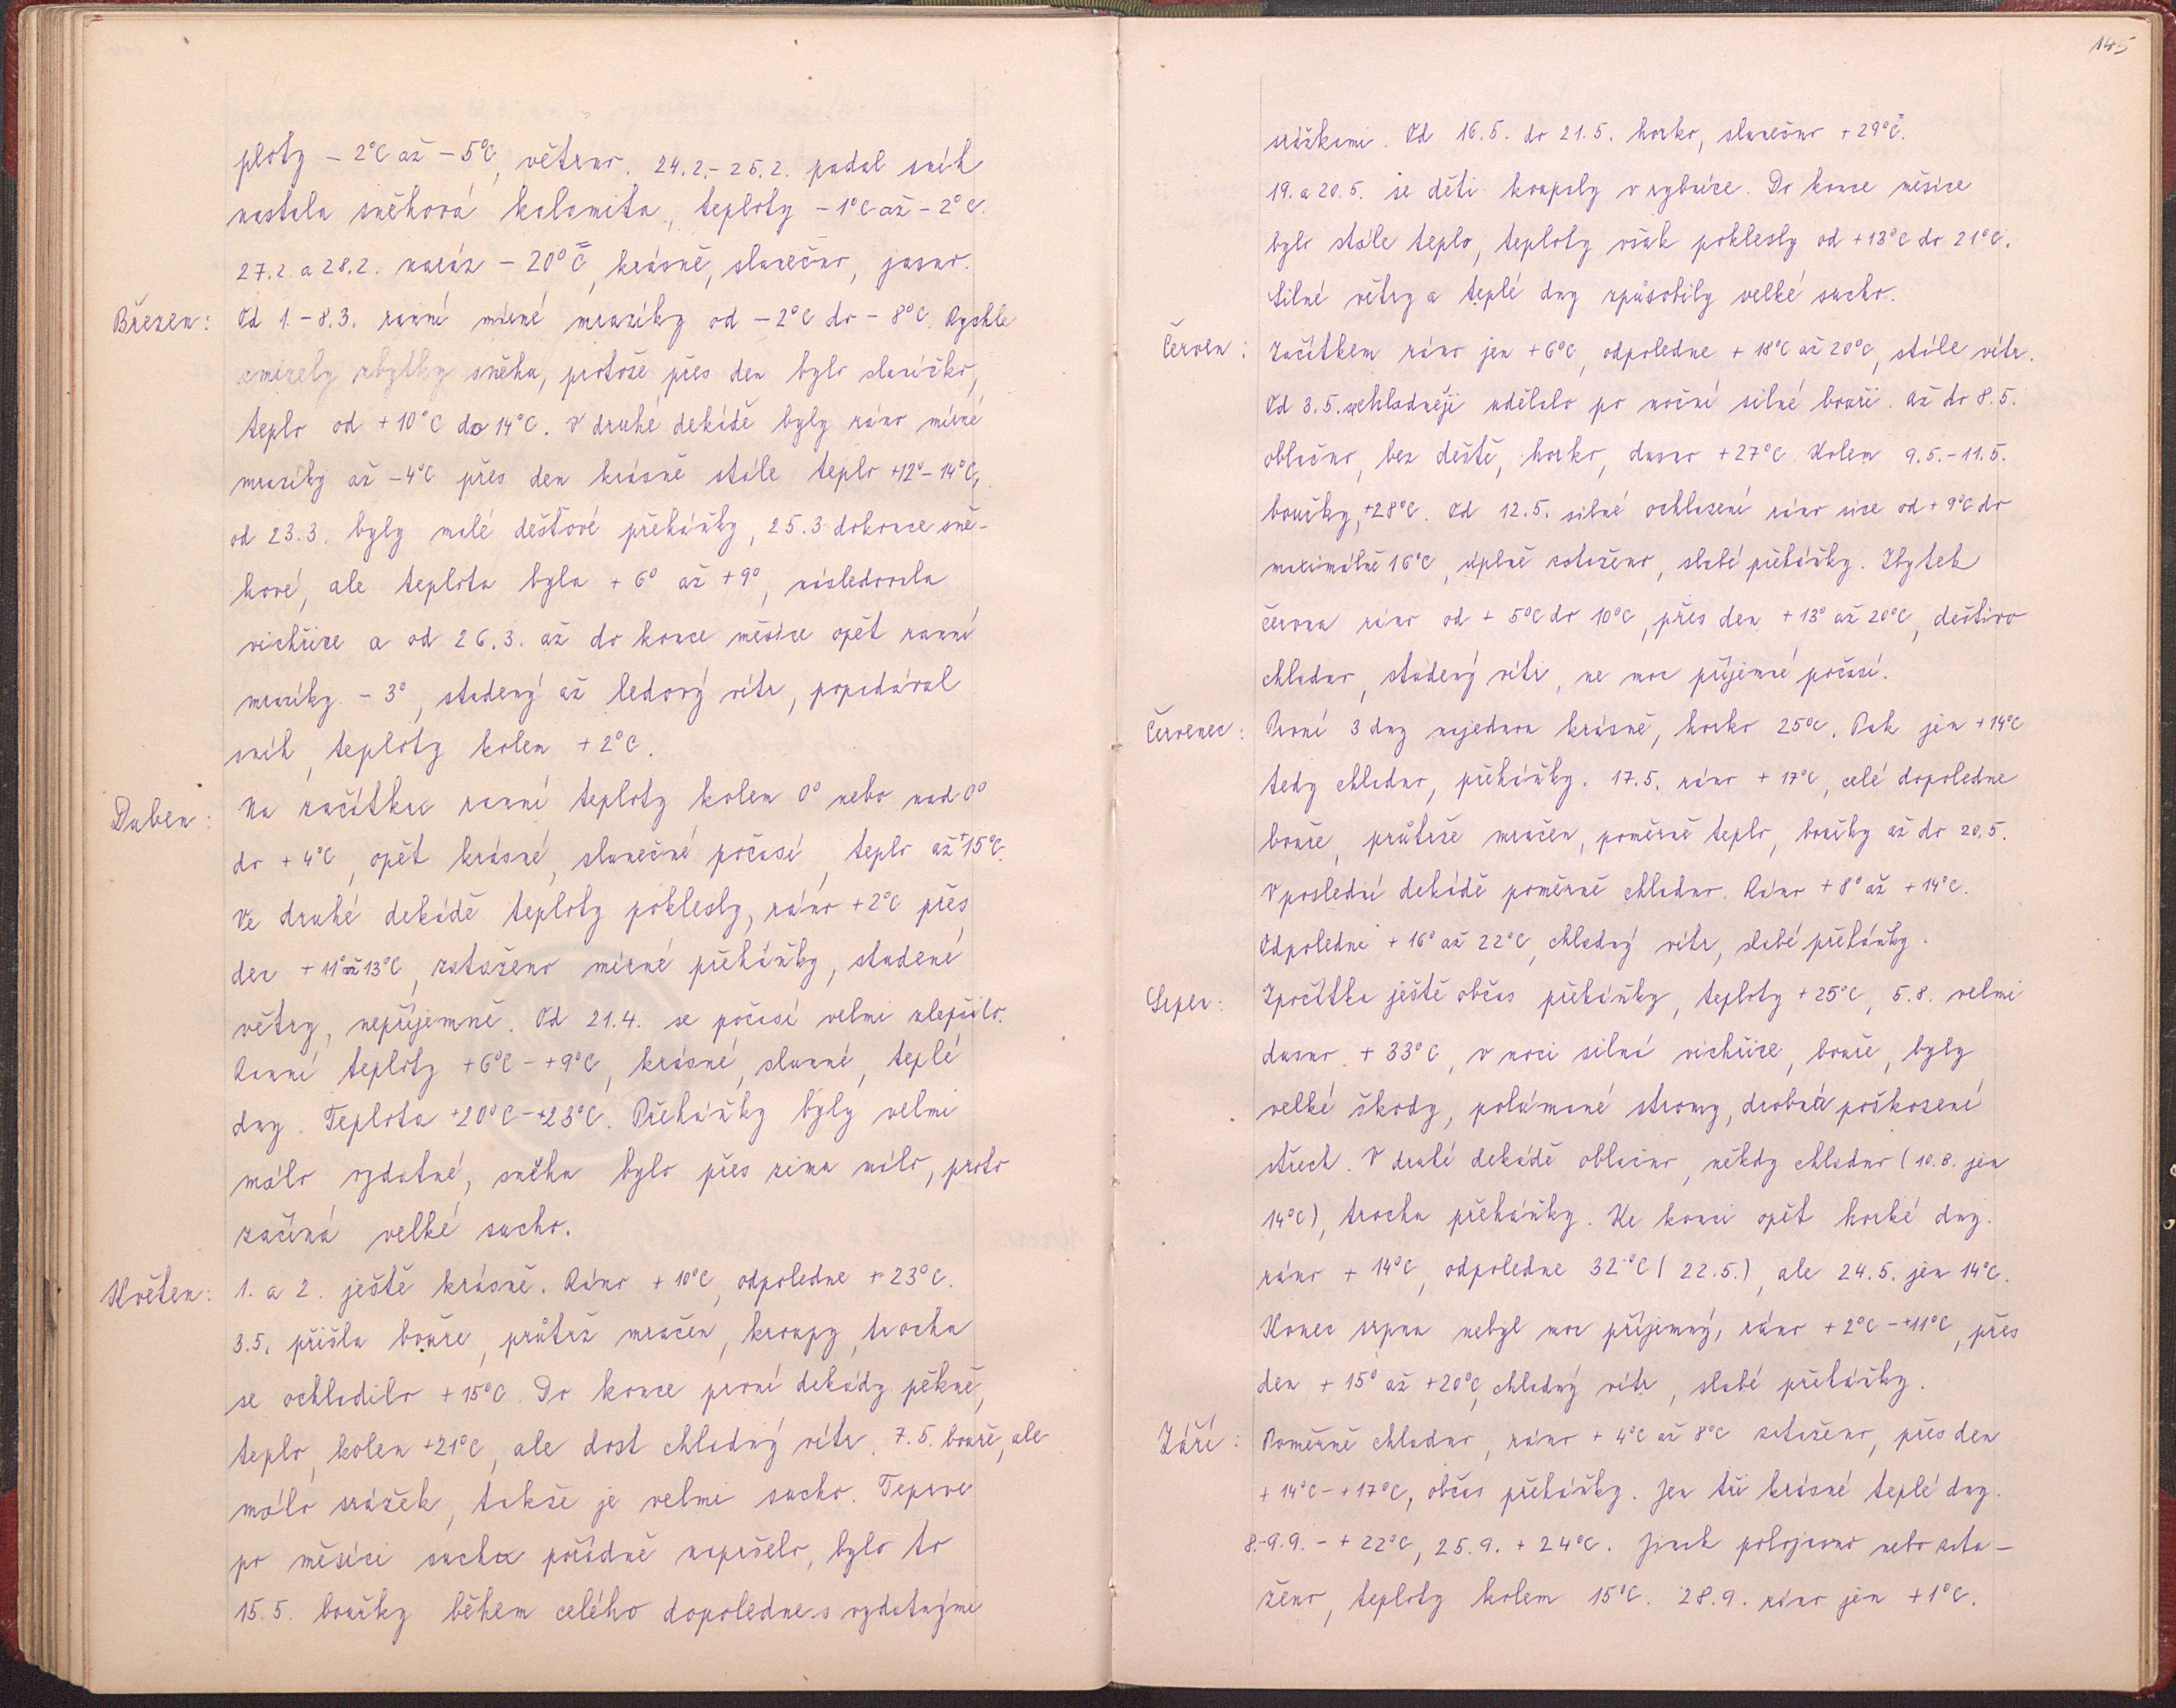 ploty – 2°C až – 5°C, větrno. 24.2.- 25.2. padal sníh
nastala sněhová kalamita, teploty – 1°C až – 2°C.
27.2. a 28.2. naráz – 20°C, krásně, slunečno, jasno.
Březen: Od 1. – 8.3. ranní mírné mrazíky od – 2°C do – 8°C. Rychle
zmizely zbytky sněhu, protože přes den bylo sluníčko,
teplo od + 10°C do 14°C. V druhé dekádě byly ráno mírné
mrazíky až – 4°C přes den krásně stále teplo +12° – 14°C,
od 23.3. byly malé dešťové přeháňky, 25.3. dokonce sně-
hové, ale teplota byla + 6° až + 9°, následovala
vichřice a od 26.3. až do konce měsíce opět ranní
mrazíky – 3°, studený až ledový vítr, popadával
sníh, teploty kolem + 2°C.
Duben: Na začátku ranní teploty kolem 0° nebo nad 0°
do + 4°C, opět krásné, slunečné počasí, teplo až +15°C.
Ve druhé dekádě teploty poklesly, ráno + 2°C přes
den + 11° až 13°C, zataženo mírné přeháňky, studené
větry, nepříjemně. Od 21.4. se počasí velmi zlepšilo.
Ranní teploty + 6°C – + 9°C, krásné, slunné, teplé
dny. Teplota +20°C – +23°C. Přeháňky byly velmi
málo vydatné, sněhu bylo přes zimu málo, proto
začíná velké sucho.
Květen: 1. a 2. ještě krásně. Ráno + 10°C, odpoledne + 23°C.
3.5. přišla bouře, průtrž mračen, kroupy, trochu
se ochladilo + 15°C. Do konce první dekády pěkně,
teplo, kolem +21°C, ale dost chladný vítr. 7.5. bouře, ale
málo srážek, takže je velmi sucho. Teprve
po měsíci sucha pořádně napršelo, bylo to
15.5. bouřky během celého dopoledne s vydatnými
145
srážkami. Od 16.5. do 21.5. horko, slunečno + 29°C.
19. a 20.5. se děti koupaly v rybníce. Do konce měsíce
bylo stále teplo, teploty však poklesly od + 13°C do 21°C.
Silné větry a teplé dny způsobily velké sucho.
Červen: Začátkem ráno jen + 6°C, odpoledne + 18°C až 20°C, stále vítr.
Od 3.5. se chladněji udělalo po noční silné bouři. Až do 8.5.
oblačno, bez deště, horko, dusno + 27°C. Kolem 9.5. – 11.5.
bouřky, +28°C. Od 12.5. silné ochlazení ráno sice od + 9°C do
maximálně 16°C, úplně zataženo, slabé přeháňky. Zbytek
června ráno od + 5°C do 10°C, přes den + 13° až 20°C, deštivo
chladno, studený vítr, ne moc příjemné počasí.
Červenec: První 3 dny najednou krásně, horko 25°C. Pak jen + 14°C
tedy chladno, přeháňky. 17.5. ráno + 17°C, celé dopoledne
bouře, průtrže mračen, poměrně teplo, bouřky až do 20.5.
V poslední dekádě poměrně chladno. Ráno + 8° až + 14°C.
Odpoledne + 16° až 22°C, chladný vítr, slabé přeháňky.
Srpen: Zpočátku ještě občas přeháňky, teploty + 25°C, 5.8. velmi
dusno + 33°C, v noci silná vichřice, bouře, byly
velké škody, polámané stromy, drobná poškození
střech. V druhé dekádě oblačno, někdy chladno (10.8. jen
14°C), trochu přeháňky. Ke konci opět horké dny.
ráno + 14°C, odpoledne 32°C (22.5.), ale 24.5. jen 14°C.
Konec srpna nebyl moc příjemný, ráno + 2°C – +11°C, přes
den + 15° až +20°C, chladný vítr, slabé přeháňky.
Září: Poměrně chladno, ráno + 4°C až 8°C zataženo, přes den
+ 14°C – + 17°C, občas přeháňky. Jen tři krásné teplé dny.
8.-9.9. – + 22°C, 25.9. + 24°C. Jinak polojasno nebo zata-
ženo, teploty kolem 15°C. 28.9. ráno jen + 1°C.